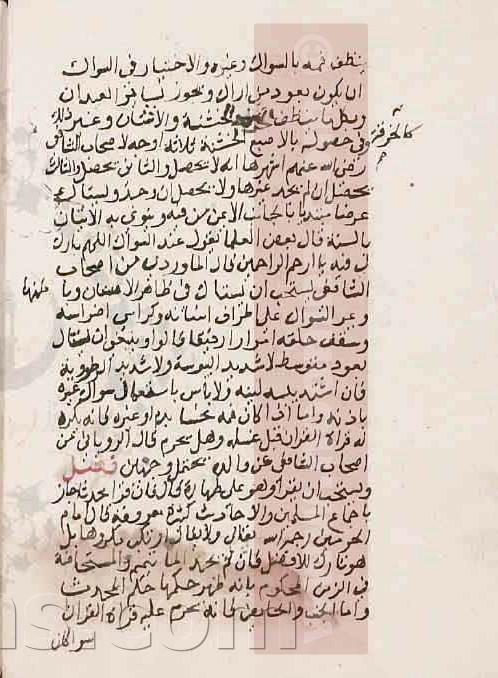 ينظف فمه بالسواك وغيره والاختيار في السواك
ان يكون بعود من اراك ويجوز بسائر العيدان
وبكل ما ينظف الخشنة والاشنان وغير ذلك
كالخرقة
وفي حصوله بالاصبع الخشنة ثلاثة اوجه لاصحاب الشافعي
رضي الله عنهم اشهرها انه لا يحصل والثاني يحصل والثالث
يحصل ان لم يجد غيرها ولا يحصل ان وجد ويستاك
عرضا مبتديا بالجانب الايمن من فيه وينوي به الاتيان
بالسنة قال بعض العلما يقول عند السواك اللهم بارك
لي فيه يا ارحم الراحمين قال الماوردي من اصحاب
الشافعي يستحب ان يستاك في ظاهر الاسنان
ويمر السواك على اطراف اسنانه وكراسي اضراسه
وسقف حلقه امرارا رفيقا قالوا وينبغي ان يستاك
بعود متوسط لا شديد اليبوسة ولا شديد الرطوبة
فان اشتد يبسه لينه ولا باس باستعمال سواك غيره
باذنه واما اذا كان فمه نجسا بدم او غيره فانه يكره
له قراة القران قبل غسله وهل يحرم قال الروياني من
اصحاب الشافعي عن والده يحتمل وجهين فصل
ويستحب ان يقرا وهو على طهارة فان قرا محدثا جاز
باجماع المسلمين والاحاديث كثيرة معروفة قال امام
الحرمين رحمه الله تعالى ولا يقال ارتكب مكروها بل
هو تارك الافضل فان لم يجد الما تيمم والمستحاضة
في الزمن المحكوم بانه طهر حكمها حكم المحدث
واما الجنب والحائض فانه يحرم عليه قراة القران
سوا كان